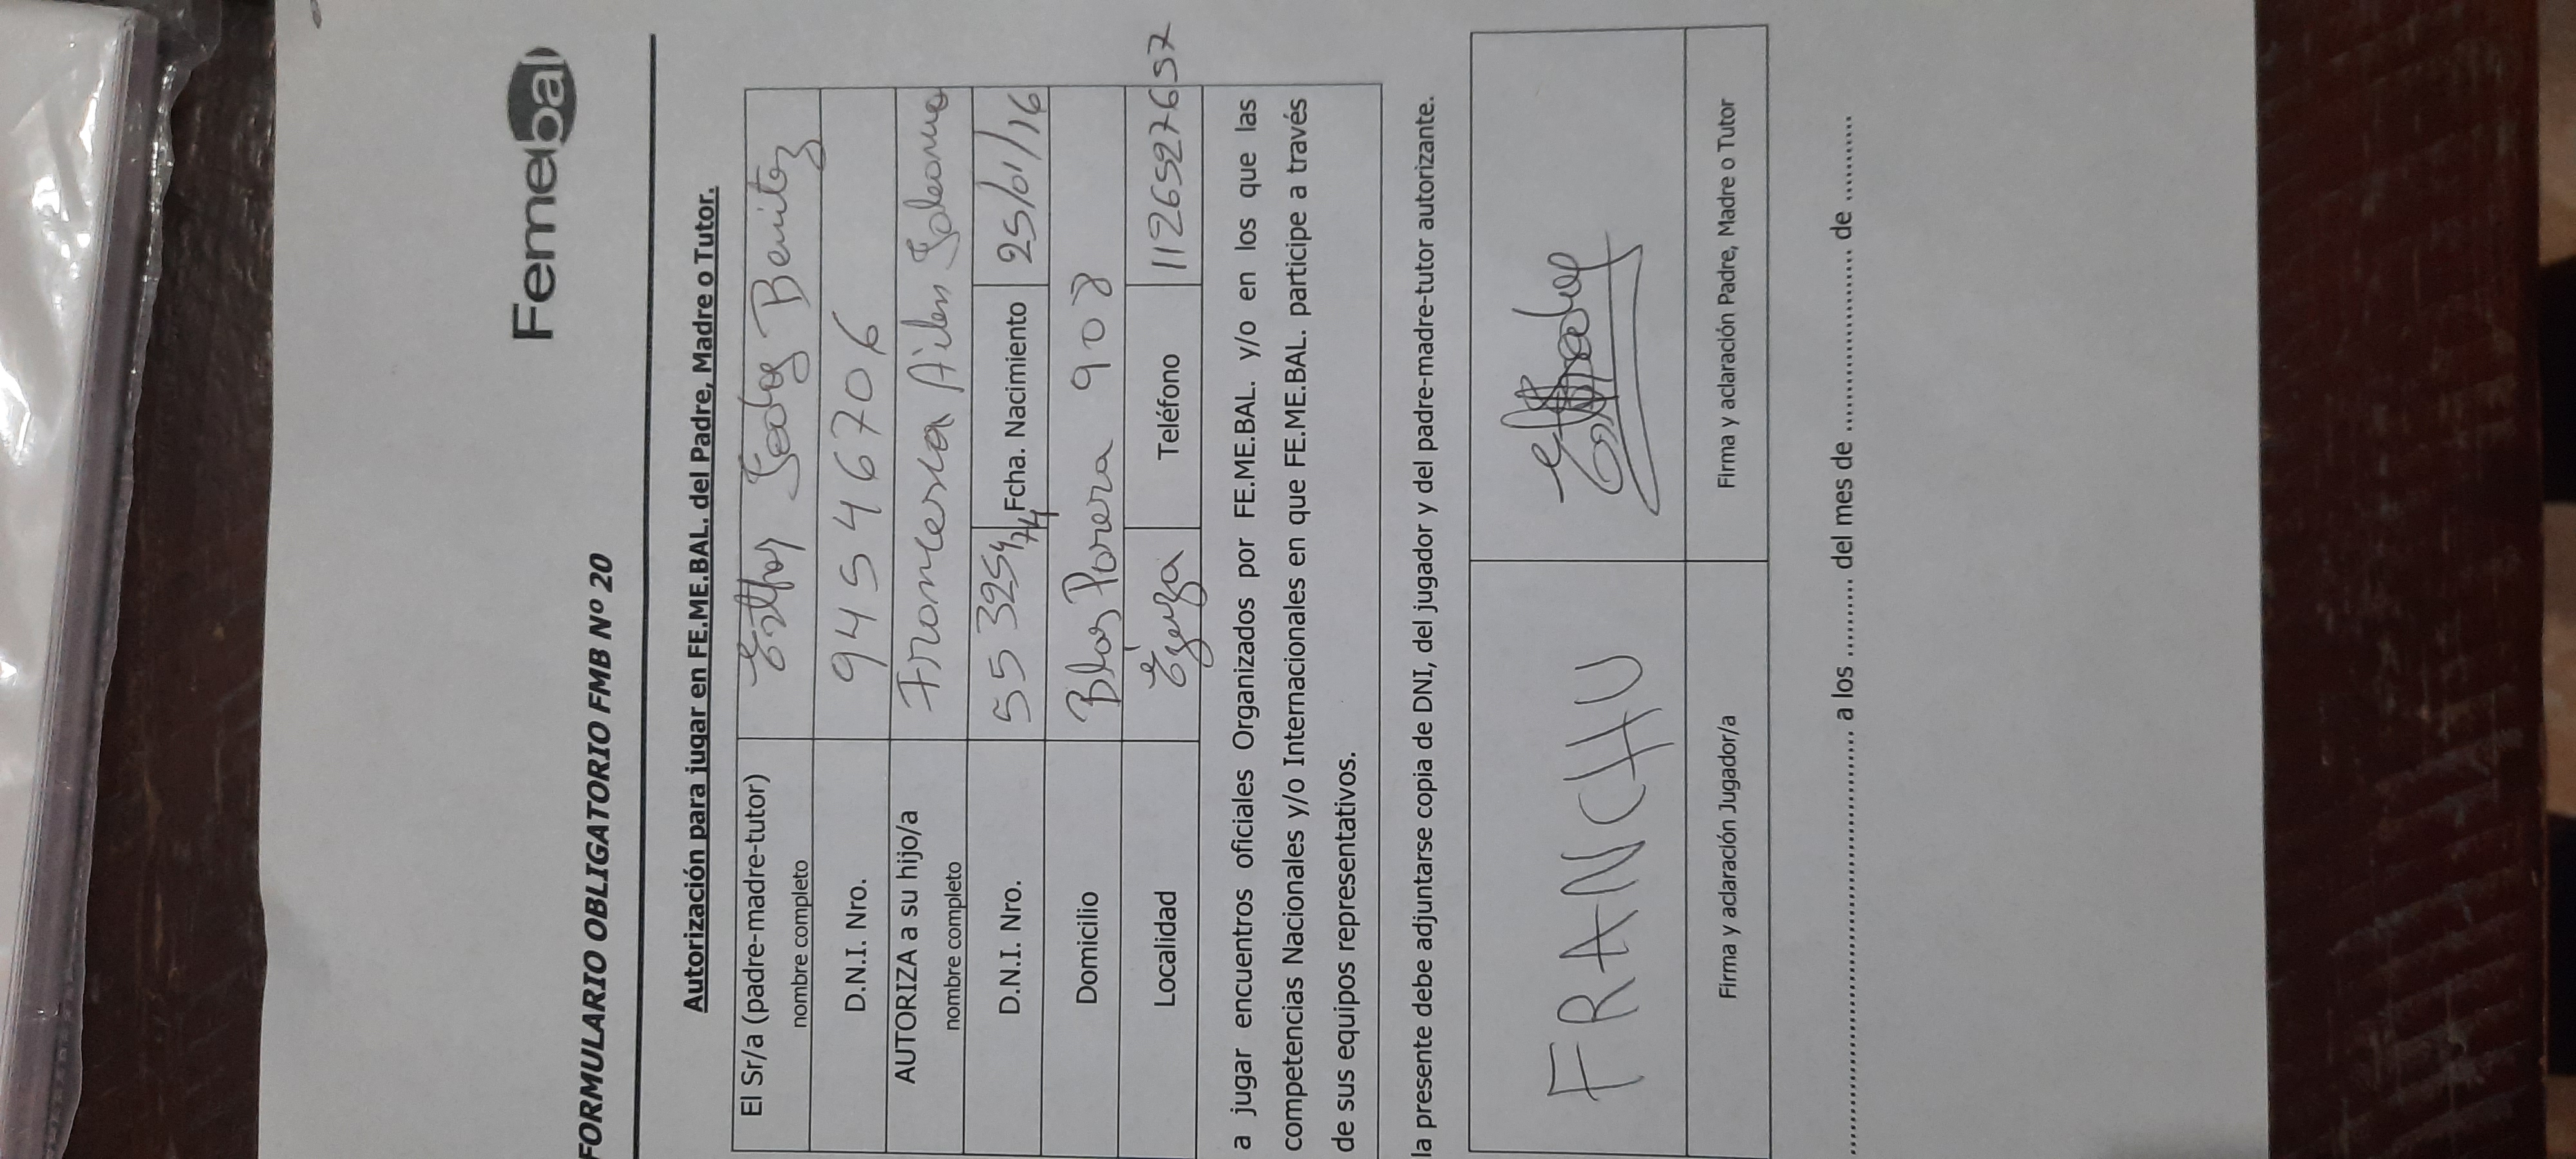 Femebal
FORMULARIO OBLIGATORIO FMB Nº 20
Autorización para jugar en FE.ME.BAL. del Padre, Madre o Tutor.
El Sr/a (padre-madre-tutor) nombre completo Benitez
D.N.I. Nro. 94546706
AUTORIZA a su hijo/a nombre completo Francesca Ailen
D.N.I. Nro. 55 3254 74 Fcha. Nacimiento 25/01/16
Domicilio Blas Parera 908
Localidad Ezeiza Teléfono 1126592765 7
a jugar encuentros oficiales Organizados por FE.ME.BAL. y/o en los que las
competencias Nacionales y/o Internacionales en que FE.ME.BAL. participe a través
de sus equipos representativos.
la presente debe adjuntarse copia de DNI, del jugador y del padre-madre-tutor autorizante.
FRANCHU
Firma y aclaración Jugador/a Firma y aclaración Padre, Madre o Tutor
.......... a los .......... del mes de .......... de ..........